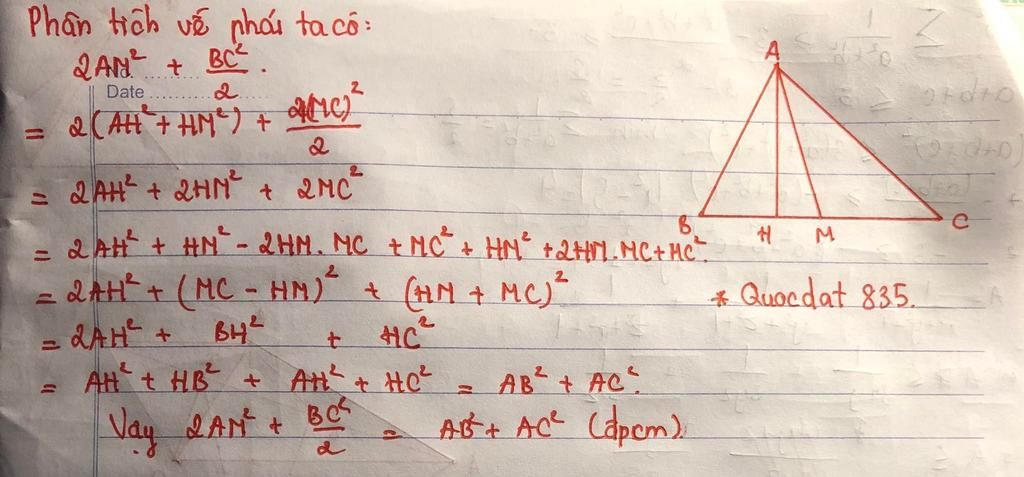 Phân tích vế phải ta có:
2AM² + BC²/2.
No.
Date
= 2(AH² + HM²) + 4(MC)²/2
= 2AH² + 2HM² + 2MC²
= 2AH² + HM² - 2HM.MC + MC² + HM² + 2HM.MC + MC².
= 2AH² + (MC - HM)² + (HM + MC)²
= 2AH² + BH² + HC²
= AH² + HB² + AH² + HC² = AB² + AC².
Vậy 2AM² + BC²/2 = AB² + AC² (đpcm).
A
B H M C
* Quocdat 835.